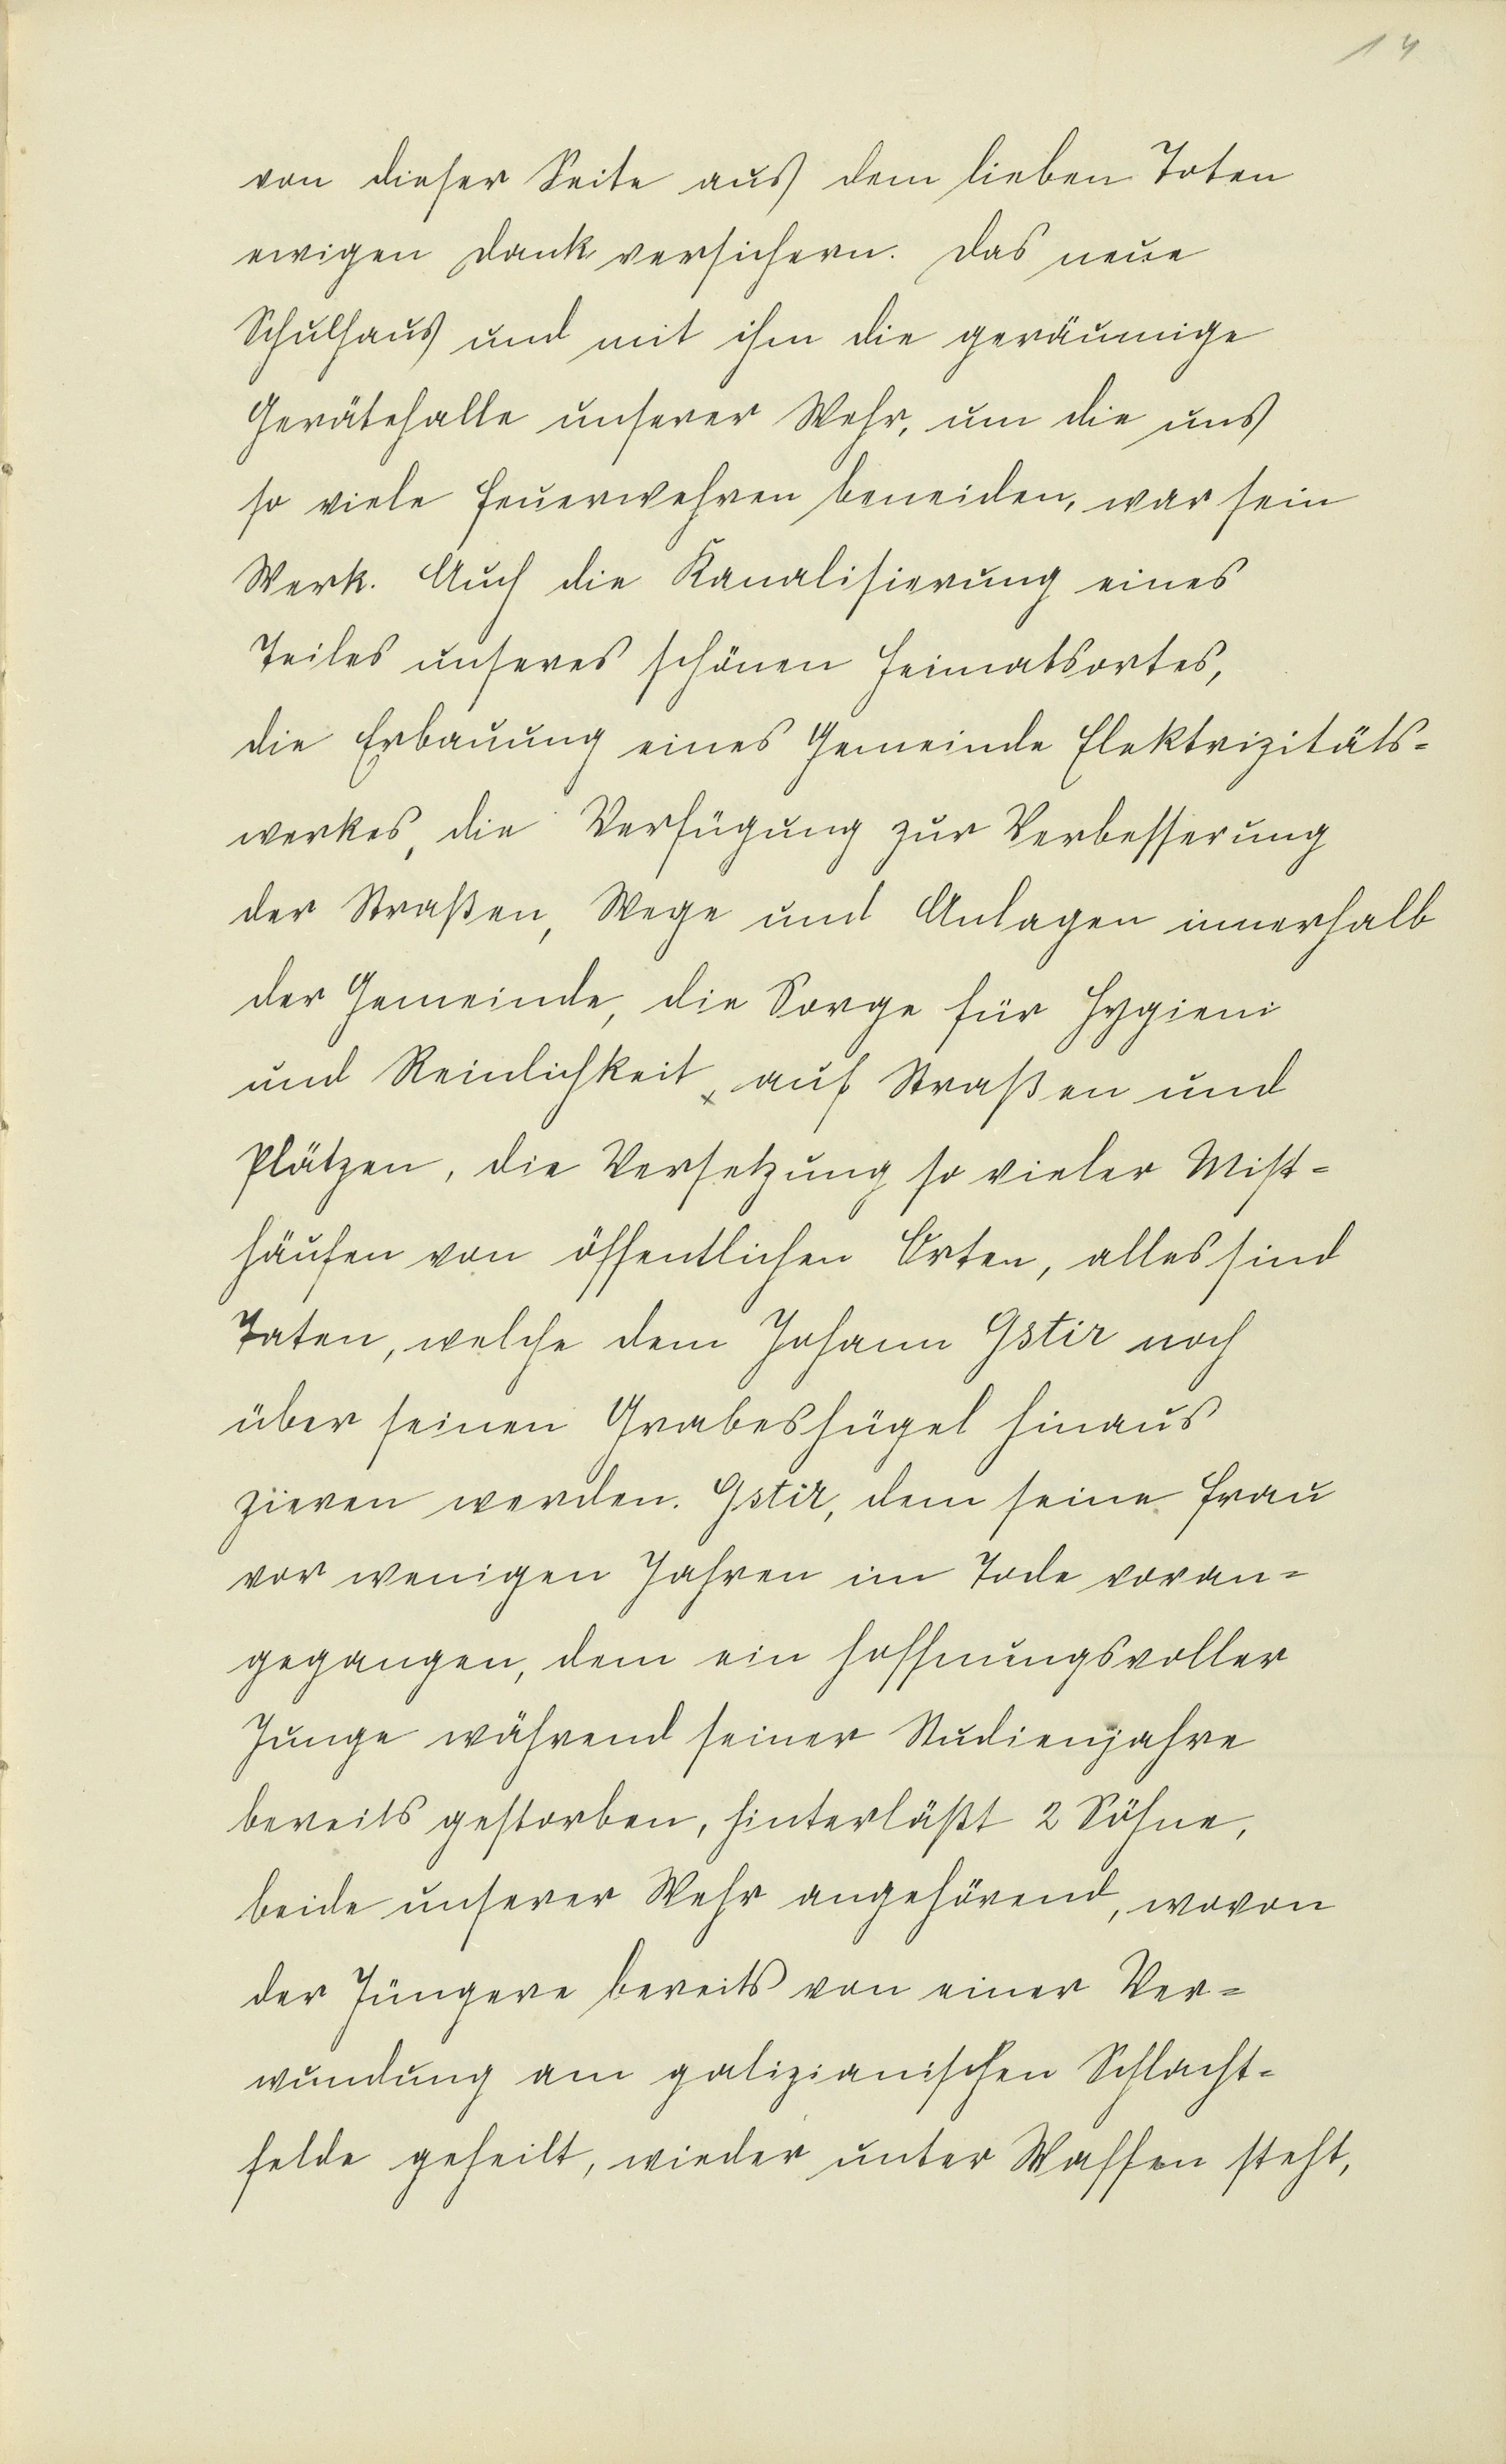 14
von dieser Seite aus dem lieben Toten
ewigen Dank versichern. Das neue
Schulhaus und mit ihm die geräumige
Gerätehalle unserer Wehr, um die uns
so viele Feuerwehren beneiden, war sein
Werk. Auch die Kanalisierung eines
Teiles unseres schönen Heimatsortes,
die Erbauung eines Gemeinde Elektrizitäts-
werkes, die Verfügung zur Verbesserung
der Straßen, Wege und Anlagen innerhalb
der Gemeinde, die Sorge für Hygieni
und Reinlichkeit x auf Straßen und
Plätzen, die Versetzung so vieler Mist-
häufen von öffentlichen Orten, alles sind
Taten, welche dem Johann Gstir noch
über seinen Grabeshügel hinaus
zieren werden. Gstir, dem seine Frau
vor wenigen Jahren im Tode voran-
gegangen, dem ein hoffnungsvoller
Junge während seiner Studienjahre
bereits gestorben, hinterläßt 2 Söhne,
beide unserer Wehr angehörend, wovon
der Jüngere bereits von einer Ver-
wundung am galizianischen Schlacht-
felde geheilt, wieder unter Waffen steht,